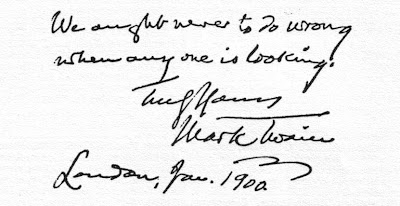 We ought never to do wrong
when any one is looking.
Truly Yours
Mark Twain
London, Jan. 1900